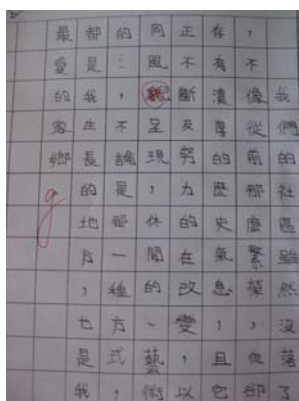 我們的社區雖然沒落了
，不像從前那麼繁榮，但卻
存有濃厚的歷史氣息，且它
正不斷及努力的在改變，以
同風貌呈現，休閒的、藝術
的…，不論是那一種方式，
都是我生長的地方，也是我
最愛的客鄉